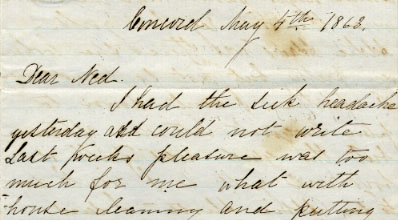 Concord May 4th 1862.
Dear Ned.
I had the sick headache
yesterday and could not write
Last weeks pleasure was too
much for me what with
house cleaning and putting